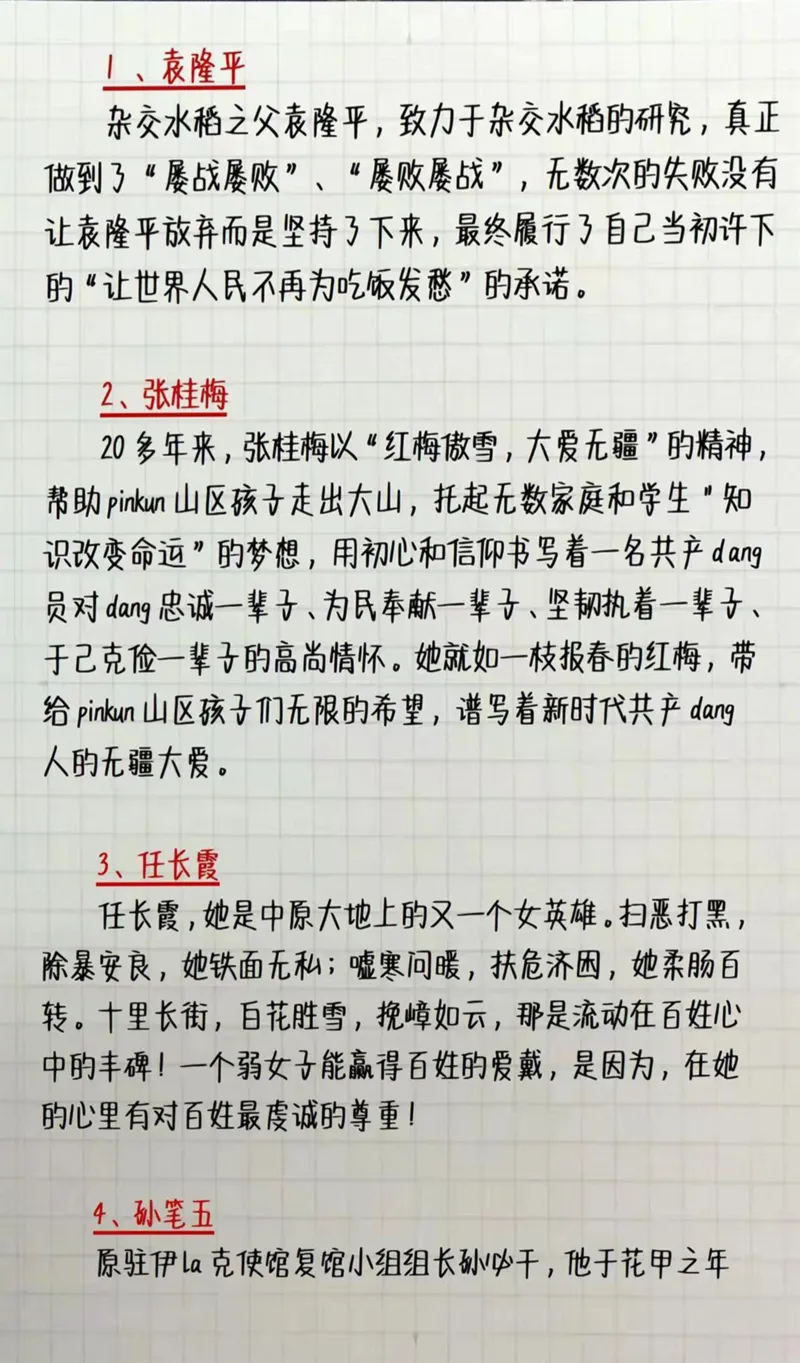 1、袁隆平
杂交水稻之父袁隆平，致力于杂交水稻的研究，真正
做到了“屡战屡败”、“屡败屡战”，无数次的失败没有
让袁隆平放弃而是坚持了下来，最终履行了自己当初许下
的“让世界人民不再为吃饭发愁”的承诺。
2、张桂梅
20多年来，张桂梅以“红梅傲雪，大爱无疆”的精神，
帮助pinkun山区孩子走出大山，托起无数家庭和学生“知
识改变命运”的梦想，用初心和信仰书写着一名共产dang
员对dang忠诚一辈子、为民奉献一辈子、坚韧执着一辈子、
于己克俭一辈子的高尚情怀。她就如一枝报春的红梅，带
给pinkun山区孩子们无限的希望，谱写着新时代共产dang
人的无疆大爱。
3、任长霞
任长霞，她是中原大地上的又一个女英雄。扫恶打黑，
除暴安良，她铁面无私；嘘寒问暖，扶危济困，她柔肠百
转。十里长街，白花胜雪，挽嶂如云，那是流动在百姓心
中的丰碑！一个弱女子能赢得百姓的爱戴，是因为，在她
的心里有对百姓最虔诚的尊重！
4、孙笔五
原驻伊la克使馆复馆小组组长孙必干，他于花甲之年